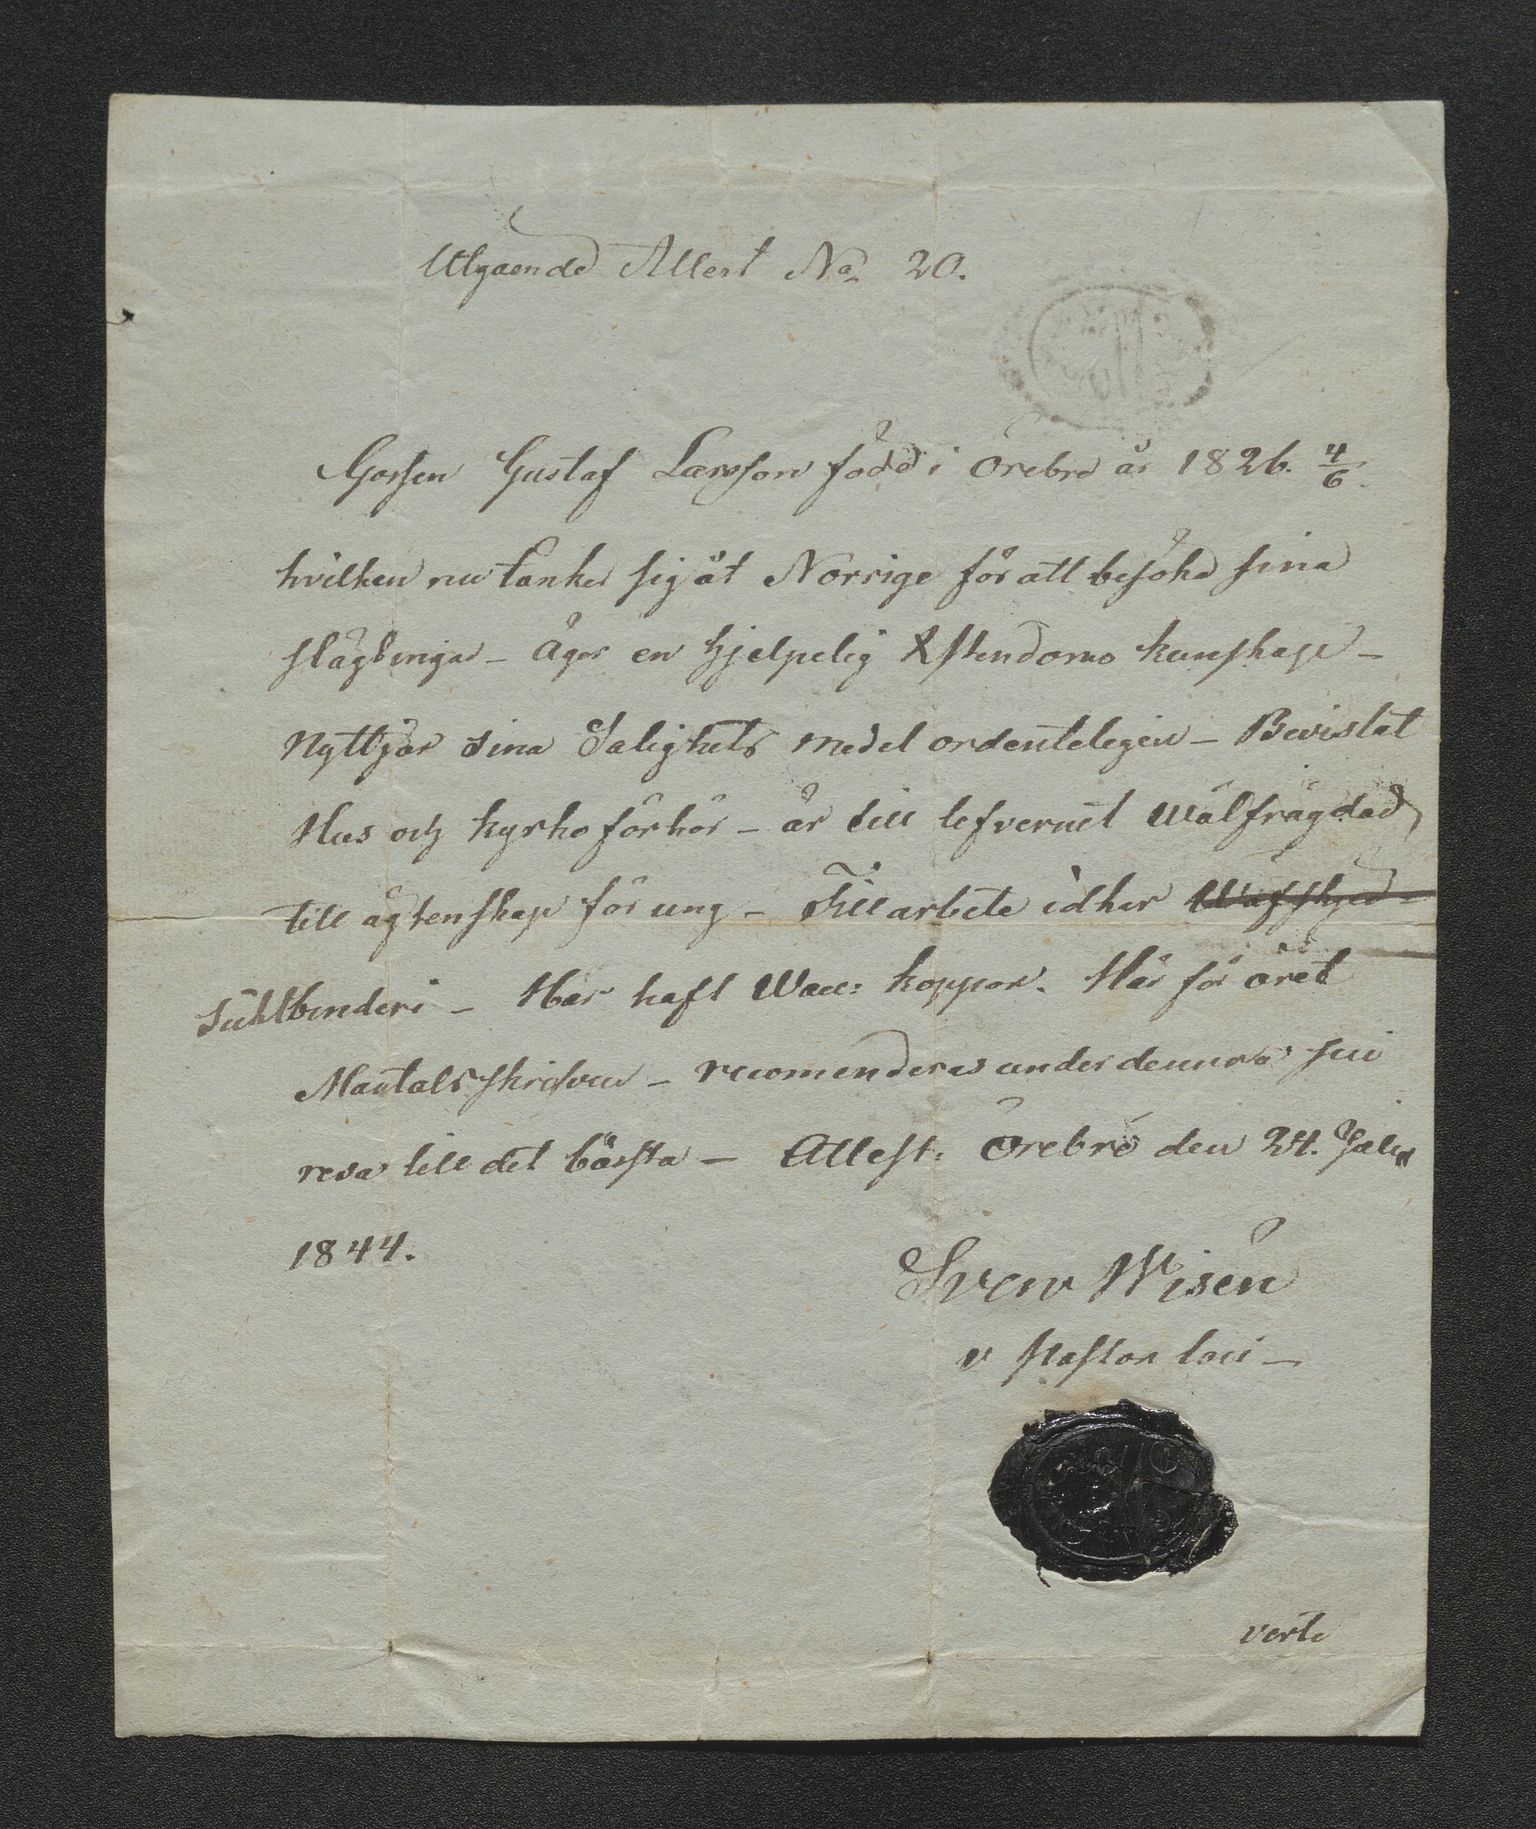 Utgaende Attest No 20.
Gossen Gustaf Larsson född i Örebro år 1826. 4/6.
hvilken nu tänker sig åt Norrige för att besöka sina
slägtingar - Äger en hjelpelig Xstendoms kunskape -
Nyttjar sina Salighets medel ordenteligen - Bevistat
Hus och kyrko förhör - är till lefvernet Wälfrägdad,
till ägtenskape för ung - Till arbete idkar
Har haft Wacc: koppor. Här för året
Mantalsskrifven - recomenderas under denna sin
resa till det bässta - Attest. Örebro den 24. Julii
1844.
Sven Wisén
v Pastor loci -
verte